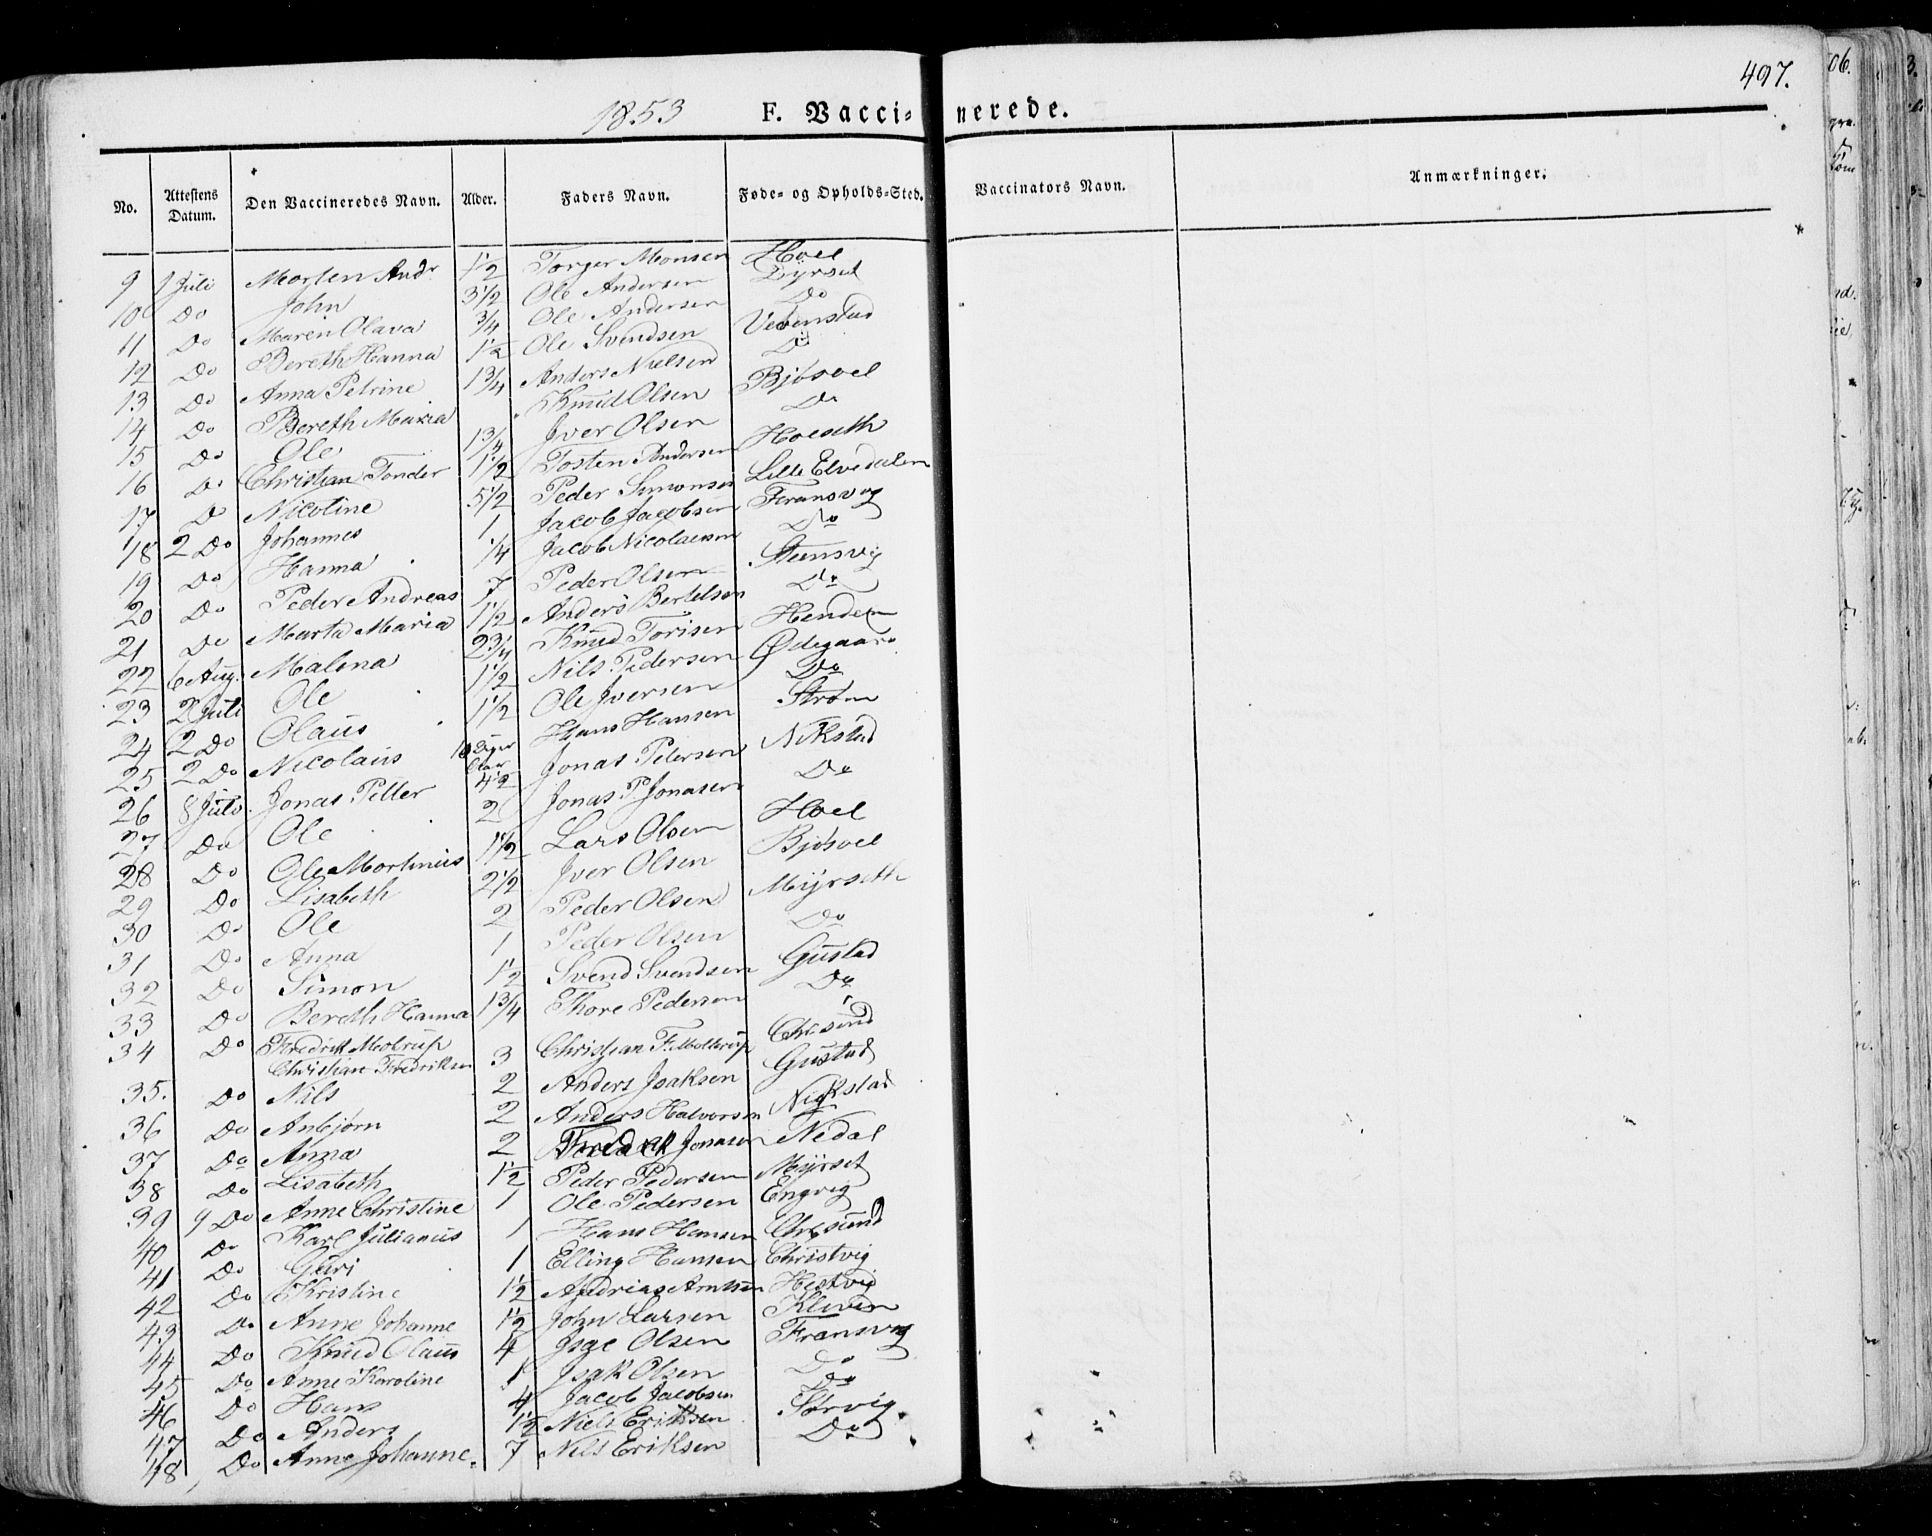 1853 F. Vaccinerede. 497.
No. Attestens Datum. Den Vaccineredes Navn. Alder. Faders Navn. Føde- og Opholds-Sted. Vaccinators Navn. Anmærkninger.
9 1 Juli Morten Andr 1 1/2 Torger Monsen Hoel
10 Do John 3 1/2 Ole Andersen Dyrset
11 Do Maren Olava 3/4 Ole Andersen Do
12 Do Bereth Hanna 1 1/2 Ole Svendsen Vevenstad
13 Do Anna Petrine 1 3/4 Anders Nielsen Do
14 Do Bereth Maria " Knud Olsen Bjösvel
15 Do Ole 1 3/4 Iver Olsen Do
16 Do Christian Tonder 1 1/2 Tosten Andersen Hoeseth
17 Do Nicoline 5 1/2 Peder Simonsen Lille Elvedalen
18 2 Do Johannes 1 Jacob Jacobsen Fransvig
19 Do Hanna 1/4 Jacob Nicolaisen Do
20 Do Peder Andreas 7 Peder Olsen Steensvig
21 Do Marta Maria 1 1/2 Anders Bertelsen Do
22 6 Aug. Malena 2 3/4 Knud Torisen Henden
23 2 Juli Ole 1 1/2 Nils Pedersen Ødegaard
24 2 Do Olaus 1 1/2 Ole Iversen Do
25 2 Do Nicolaus Hans Hansen Strøm
26 8 Juli Jonas Petter 4 1/2 Jonas Petersen Nikstad
27 Do Ole 2 Jonas P. Jonasen Do
28 Do Ole Martinus 1 1/2 Lars Olsen Hoel
29 Do Lisabeth 2 1/2 Iver Olsen Bjösvel
30 Do Ole 2 Peder Olsen Myrseth
31 Do Anna 1 Peder Olsen Do
32 Do Simon 1 1/2 Svend Svendsen Gustad
33 Do Bereth Hanna 1 3/4 Thore Pedersen Do
34 Do Fredrik Moltrup
Christian Fredriksen 3 Christian F. Moltrup Chrsund
35. Do Nils 2 Anders Isaksen Gustad
36 Do Anbjørn 2 Anders Halvorsen Nickstad
37 Do Anna 2 Fredrek Jonasen Nedal
38 Do Lisabeth 1 1/2 Peder Pedersen Myrset
39 9 Do Anne Christine 1 Ole Pedersen Engvig
40 Do Karl Julianus 1 Hans Hansen Chrsund
41 Do Guri 1 Elling Hansen Christvig
42 Do Kristine 1 1/2 Andrias Arntsen Hestvig
43 Do Anne Johanne 1 1/2 John Larsen Kleven
44 Do Knud Olaus 4 Isac Olsen Fransvig
45 Do Anne Karoline 1 Isak Olsen Do
46 Do Hans 4 Jacob Jacobsen Do
47 Do Anders 1 1/2 Niels Eriksen Sørvig
48 Do Anne Johanne 7 Nils Eriksen Do